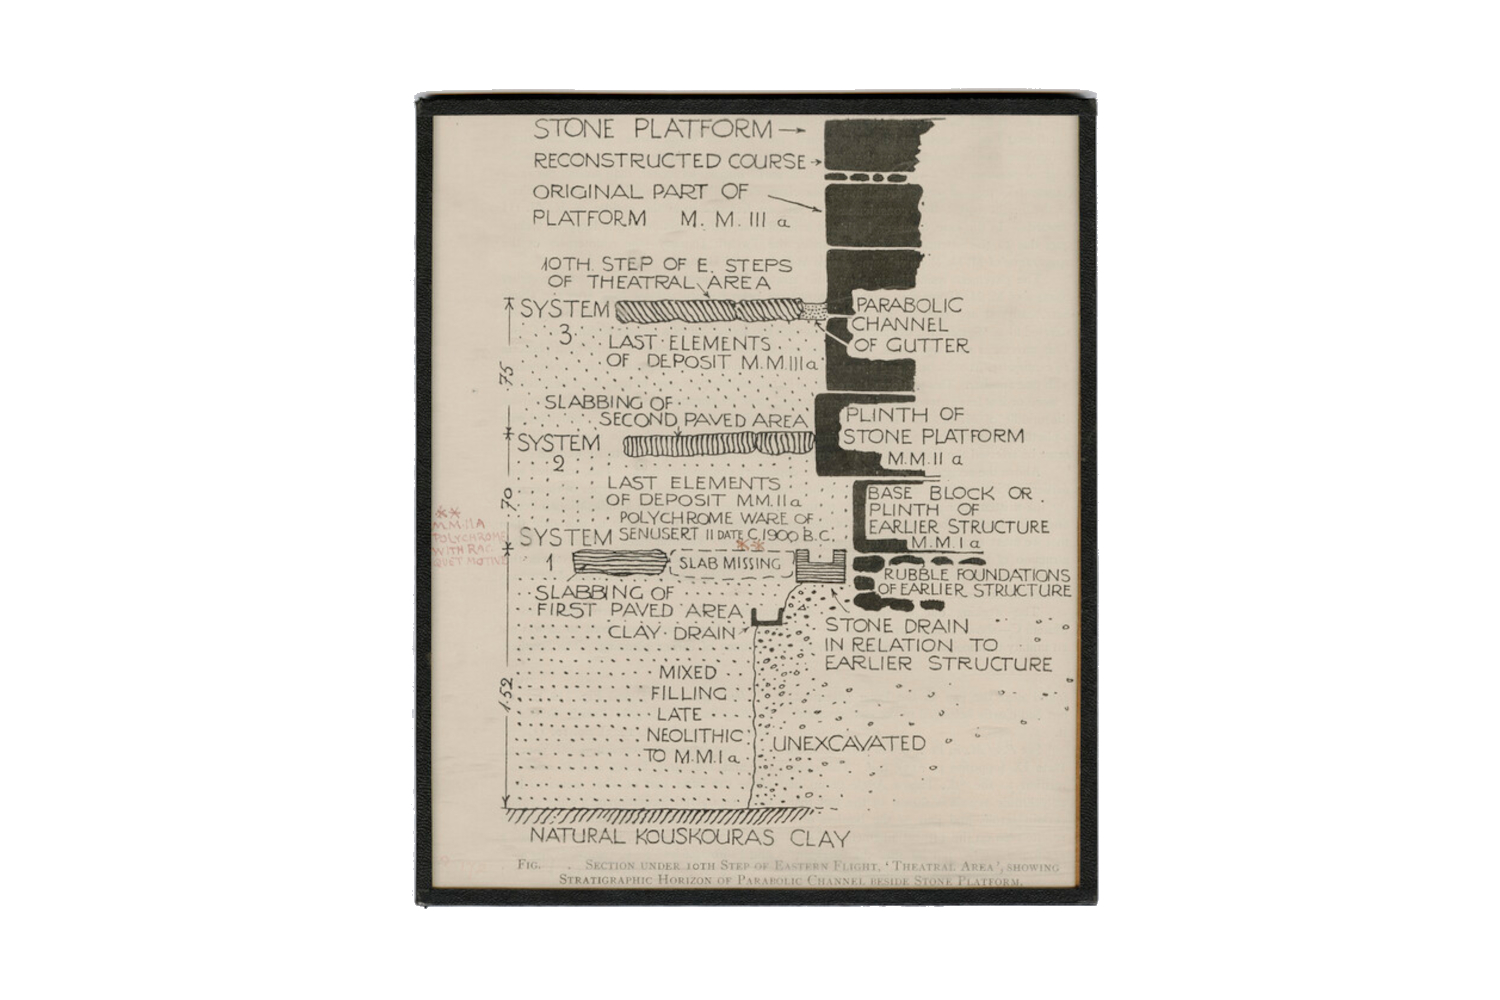 STONE PLATFORM
RECONSTRUCTED COURSE
ORIGINAL PART OF
PLATFORM M. M. III a
10TH. STEP OF E. STEPS
OF THEATRAL AREA
SYSTEM
3
PARABOLIC
CHANNEL
OF GUTTER
LAST ELEMENTS
OF DEPOSIT M.M.III a
.75
SLABBING OF
SECOND PAVED AREA
PLINTH OF
STONE PLATFORM
M.M.II a
SYSTEM
2
LAST ELEMENTS
OF DEPOSIT M.M.II a
POLYCHROME WARE OF
SENUSERT II DATE C. 1900 B.C.
**
.70
BASE BLOCK OR
PLINTH OF
EARLIER STRUCTURE
M.M.I a
**
M.M.IIA
POLYCHROME
WITH RAC
QUET MOTIVE
SYSTEM
1
SLAB MISSING
RUBBLE FOUNDATIONS
OF EARLIER STRUCTURE
SLABBING OF
FIRST PAVED AREA
CLAY DRAIN
STONE DRAIN
IN RELATION TO
EARLIER STRUCTURE
1.52
MIXED
FILLING
LATE
NEOLITHIC
TO M.M.I a
UNEXCAVATED
NATURAL KOUSKOURAS CLAY
FIG. SECTION UNDER 10TH STEP OF EASTERN FLIGHT, 'THEATRAL AREA', SHOWING
STRATIGRAPHIC HORIZON OF PARABOLIC CHANNEL BESIDE STONE PLATFORM.